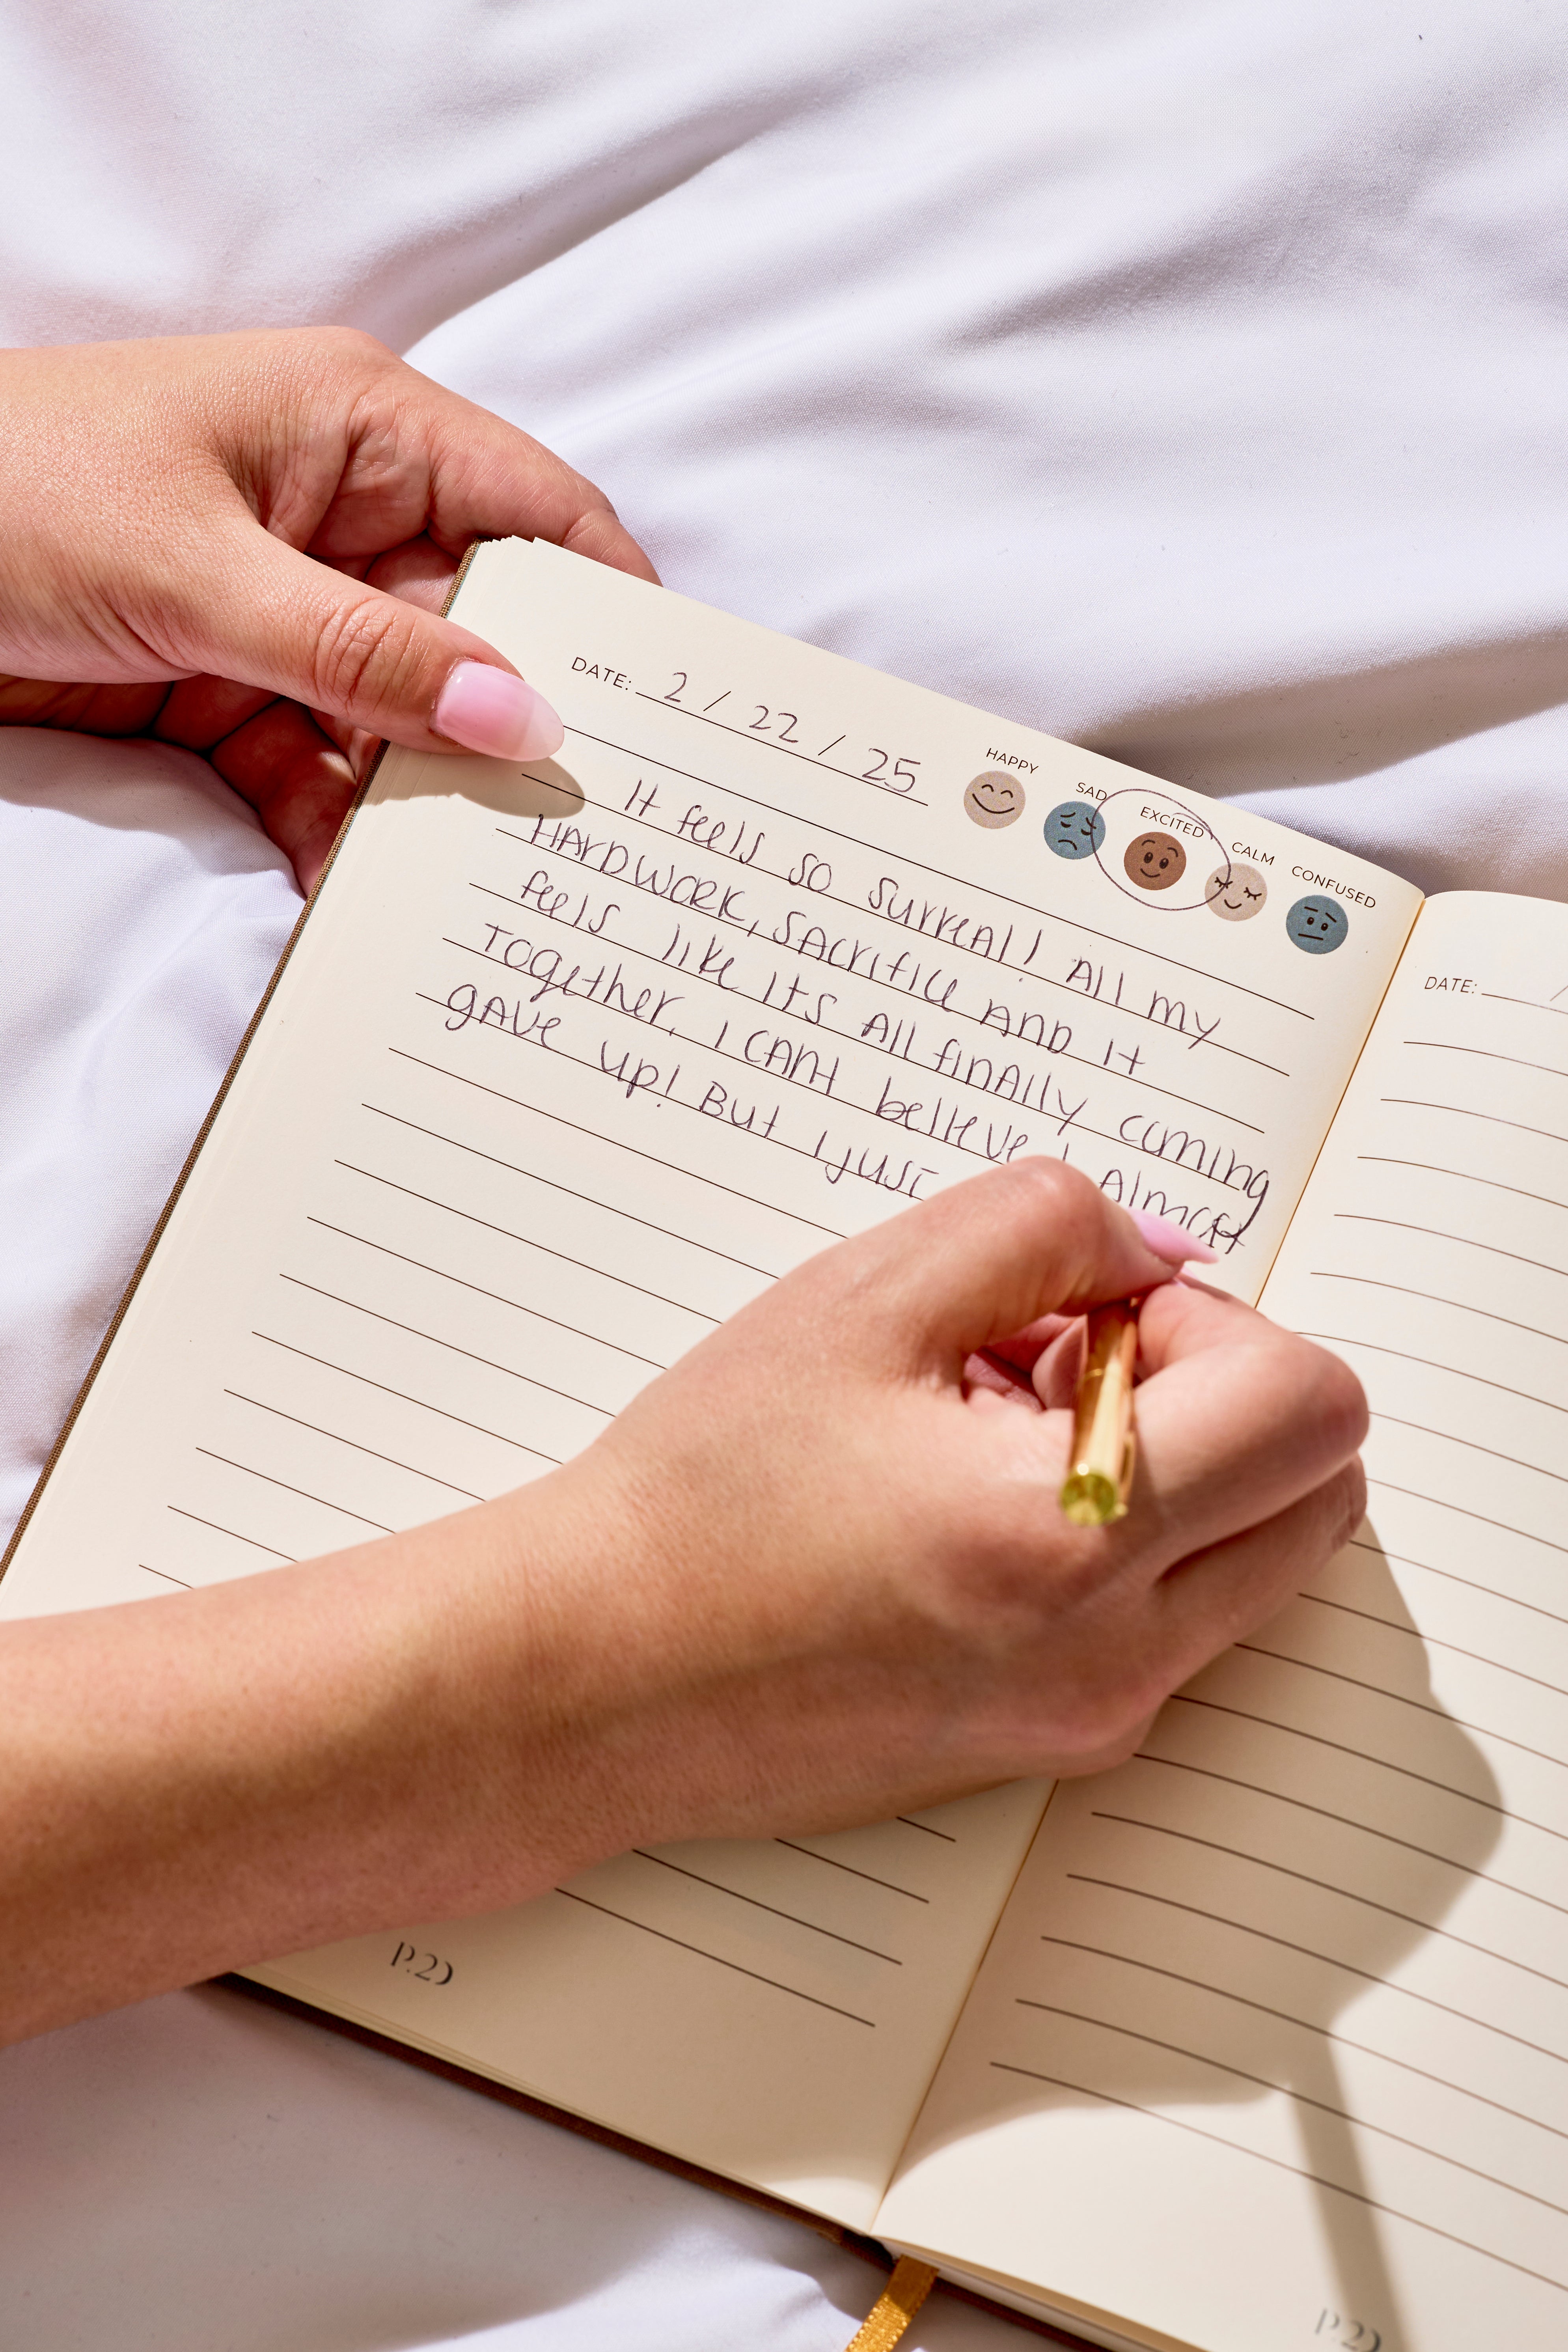 DATE: 2 / 22 / 25
HAPPY SAD EXCITED CALM CONFUSED
It feels so surreal! All my
HARDWORK, SACrifice AND it
feels like its All finally coming
Together. I CANt believe I Almost
gave up! But I just
P.2
DATE: /
P.2